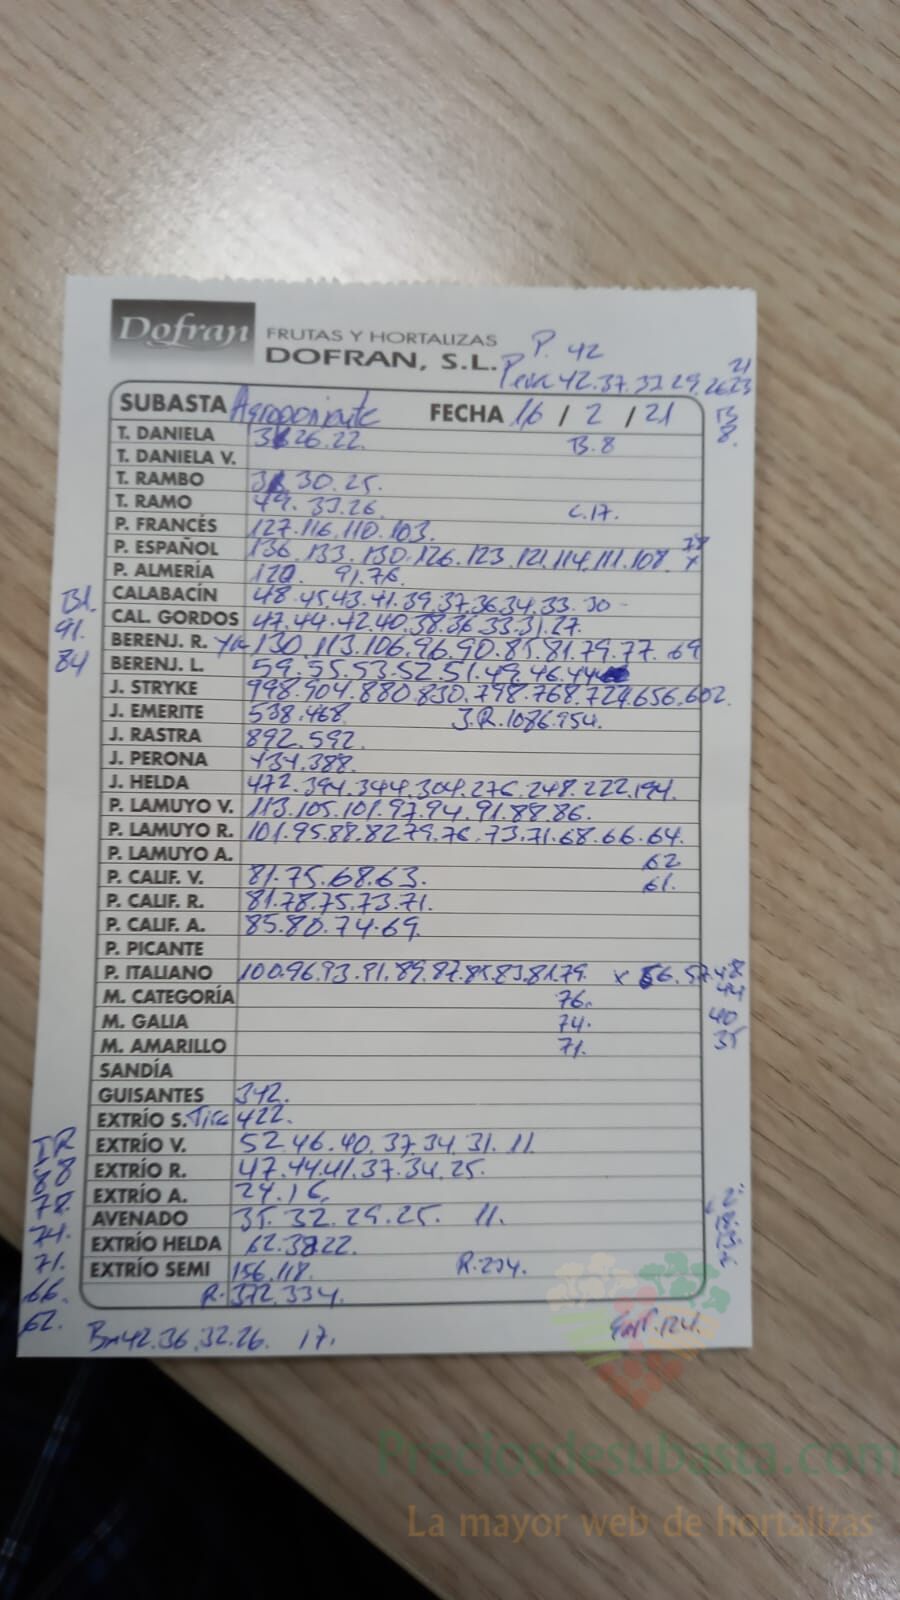 Dofran FRUTAS Y HORTALIZAS
DOFRAN, S.L.
P. 42
Pera 42.37.33.29.26.23
21
B
8.
SUBASTA Agroponiente FECHA 16 / 2 / 21
T. DANIELA 26.22. B.8
T. DANIELA V.
T. RAMBO 30.25.
T. RAMO 49.33.26. C.17.
P. FRANCÉS 127.116.110.103.
P. ESPAÑOL 136.133.130.126.123.121.114.111.108 x 78
P. ALMERÍA 120. 91.76.
CALABACÍN 48.45.43.41.39.37.36.34.33.30
CAL. GORDOS 47.44.42.40.38.36.33.31.27.
BERENJ. R. 130.113.106.96.90.85.81.79.77. 69
BERENJ. L. 59.55.53.52.51.49.46.44
Bl.
91.
84
J. STRYKE 998.904.880.830.798.768.724.656.602.
J. EMERITE 538.468 J.R.1086.954.
J. RASTRA 892.592.
J. PERONA 434.388.
J. HELDA 472.394.344.304.276.248.222.194.
P. LAMUYO V. 113.105.101.97.94.91.88.86.
P. LAMUYO R. 101.95.88.82.79.76.73.71.68.66.64.
P. LAMUYO A. 62
P. CALIF. V. 81.75.68.63. 61.
P. CALIF. R. 81.78.75.73.71.
P. CALIF. A. 85.80.74.69.
P. PICANTE
P. ITALIANO 100.96.93.91.89.87.85.83.81.79. x 66.57.48
M. CATEGORÍA 76. 44
M. GALIA 74. 40
M. AMARILLO 71. 35
SANDÍA
GUISANTES 342.
EXTRÍO S. 422.
EXTRÍO V. 52.46.40.37.34.31.11
EXTRÍO R. 47.44.41.37.34.25.
EXTRÍO A. 24.16.
AVENADO 35.32.29.25. 11.
EXTRÍO HELDA 62.38.22.
EXTRÍO SEMI 156.118. R.234.
R.372.334.
IR
88
78.
74.
71.
66.
62.
42.36.32.26. 17.
124.
Preciosdesubasta.com
La mayor web de hortalizas